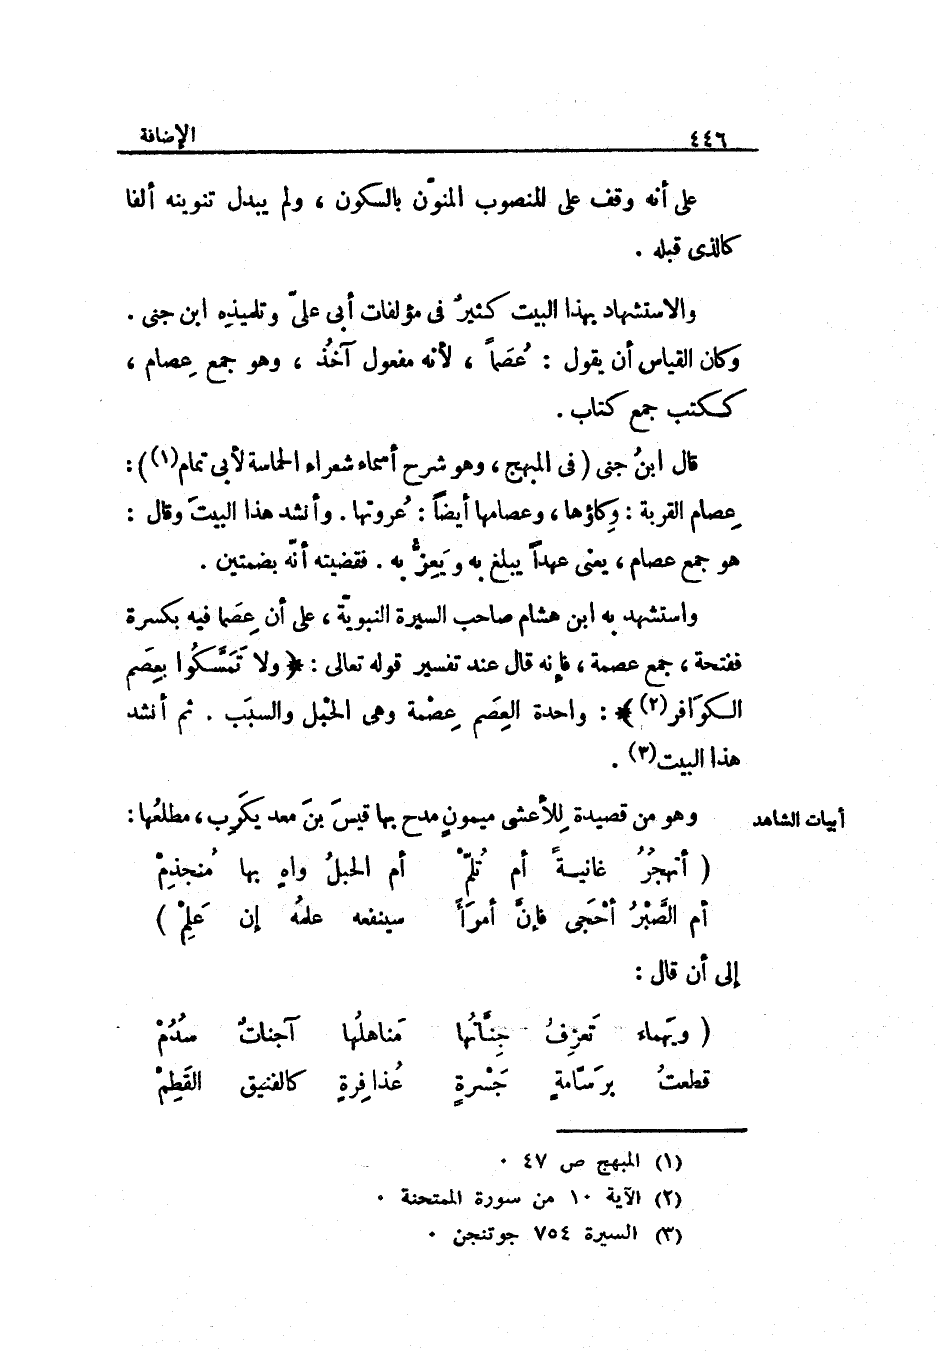 ٤٤٦ الإضافة
على أنه وقف على المنصوب المنوّن بالسكون ، ولم يبدل تنوينه ألفا
كالذى قبله .
والاستشهاد بهذا البيت كثيرٌ فى مؤلفات أبى علىّ وتلميذهِ ابن جنى .
وكان القياس أن يقول : عُصَماً ، لأنه مفعول آخُذ ، وهو جمع عِصام ،
ككتب جمع كتاب .
قال ابنُ جنى ( فى المبهج ، وهو شرح أسماء شعراء الحماسة لأبى تمام(١) ) :
عِصام القربة : وِكاؤها ، وعصامها أيضاً : عُروتها . وأنشد هذا البيتَ وقال :
هو جمع عصام ، يعنى عهداً يبلغ به ويَعِزُّ به . فقضيته أنّه بضمتين .
واستشهد به ابن هشام صاحب السيرة النبويّة ، على أن عِصَما فيه بكسرة
ففتحة ، جمع عصمة ، فإنه قال عند تفسير قوله تعالى : ﴿ ولا تَمَسَّكُوا بِعِصَم
الكوَافر(٢) ﴾ : واحدة العِصَم عِصْمة وهى الحَبْل والسبَب . ثم أنشد
هذا البيت(٣) .
أبيات الشاهد
وهو من قصيدة لِلأعشى ميمونٍ مدح بها قيسَ بنَ معد يكَرِب ، مطلعُها :
( أتهجُرُ غانيــةً أم تُلِمّْ أم الحبلُ واهٍ بها مُنجذِمْ
أم الصَّبْرُ أحْجَى فإنَّ أمرَأً سينفعه علمُه إن عَلِمْ )
إلى أن قال :
( ويَهماء تَعزِفُ جِنَّانُها مَناهلُها آجناتٌ سُدُمْ
قطعتُ برَسّامةٍ جَسْرةٍ عُذافِرةٍ كالفنيق القَطِمْ
(١) المبهج ص ٤٧ .
(٢) الآية ١٠ من سورة الممتحنة .
(٣) السيرة ٧٥٤ جوتنجن .